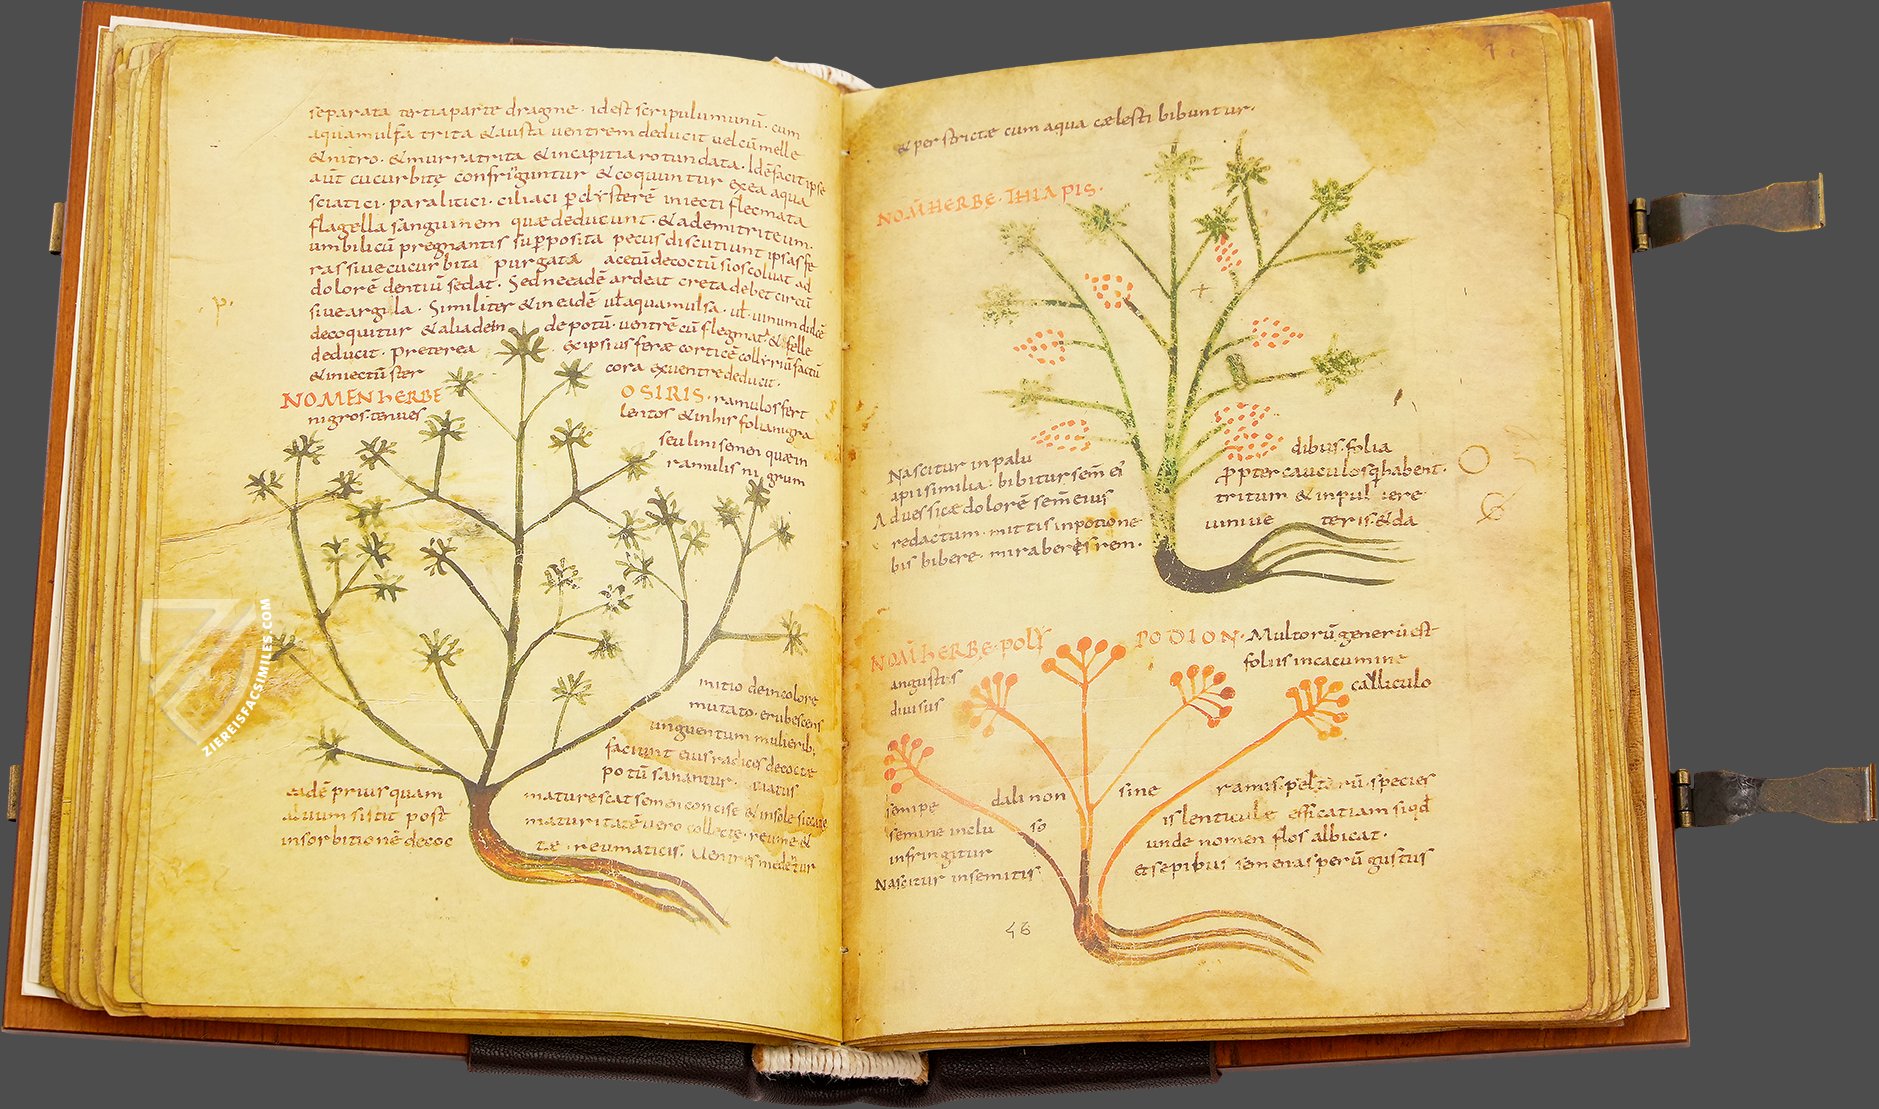 separata tertia parte dragme · id est scripulum unū · cum
aqua mulsa trita & austa uentrem deducit uel cū melle
& nitro · & murra trita & in capitia rotundata · Idē facit ipse
aūt cucurbitę confringuntur & coquuntur ex ea aqua
sciatici · paralitici · ciliaci p clysterē iniecti flecmata
flagella sanguinem quæ deducunt · & ademitriteum ·
umbilicū pregnantis supposita pecus discutiunt ipsas fe
ras siue cucurbita purgata acetū decoctū si os coluat ad
dolorē dentiū sedat · Sed ne cadē ardeat creta debet circū
siue argilla · Similiter & in eadē uł aqua mulsa · uł uinum dulcē
decoquitur & alia dein de potū · uentrē cū flegmat & felle
deducit · preterea ex ipsius feræ corticē collyriū factū
& iniectū ster cora ex uentre deducit ·
NOMEN hERBE OSIRIS · ramulos fert
nigros · tenues lentos & in his folia nigra
seu lini semen quæ in
ramulis ni grum
initio dein colore
mutato · erubescens
unguentum mulierib;
faciunt eius radices decocte
potū sanantur · ciatus
eadē priusquam maturescat semen concise & in sole siccate
aluum sistit post maturitatē uero collecte · reume &
in sorbitionē decoc te · reumaticis · Uentres medetur
ZIEREISFACSIMILES.COM
& perstrictæ cum aqua cælesti bibuntur ·
NOM̄ HERBE · THIAPIS ·
Nascitur in palu dibus · folia
apii similia · bibitur sem̄ ei ppter cauculos q̄ habent ·
Ad uessicæ dolorē sem̄ eius tritum & in pul uere
redactum · mittis in potione uini ue teris · & da
bis bibere · miraberis rem ·
NOM̄ hERBE · POLY PODION · Multorū generū est
angustis foliis in cacumine
diuisus calliculo
semper dali non sine ramis · pelte rū · species
semine inclu so is lenticulę efficatiam siqd
infringitur unde nomen flos albicat ·
Nascitur in semitis et sepibus semen asperū gustus
46